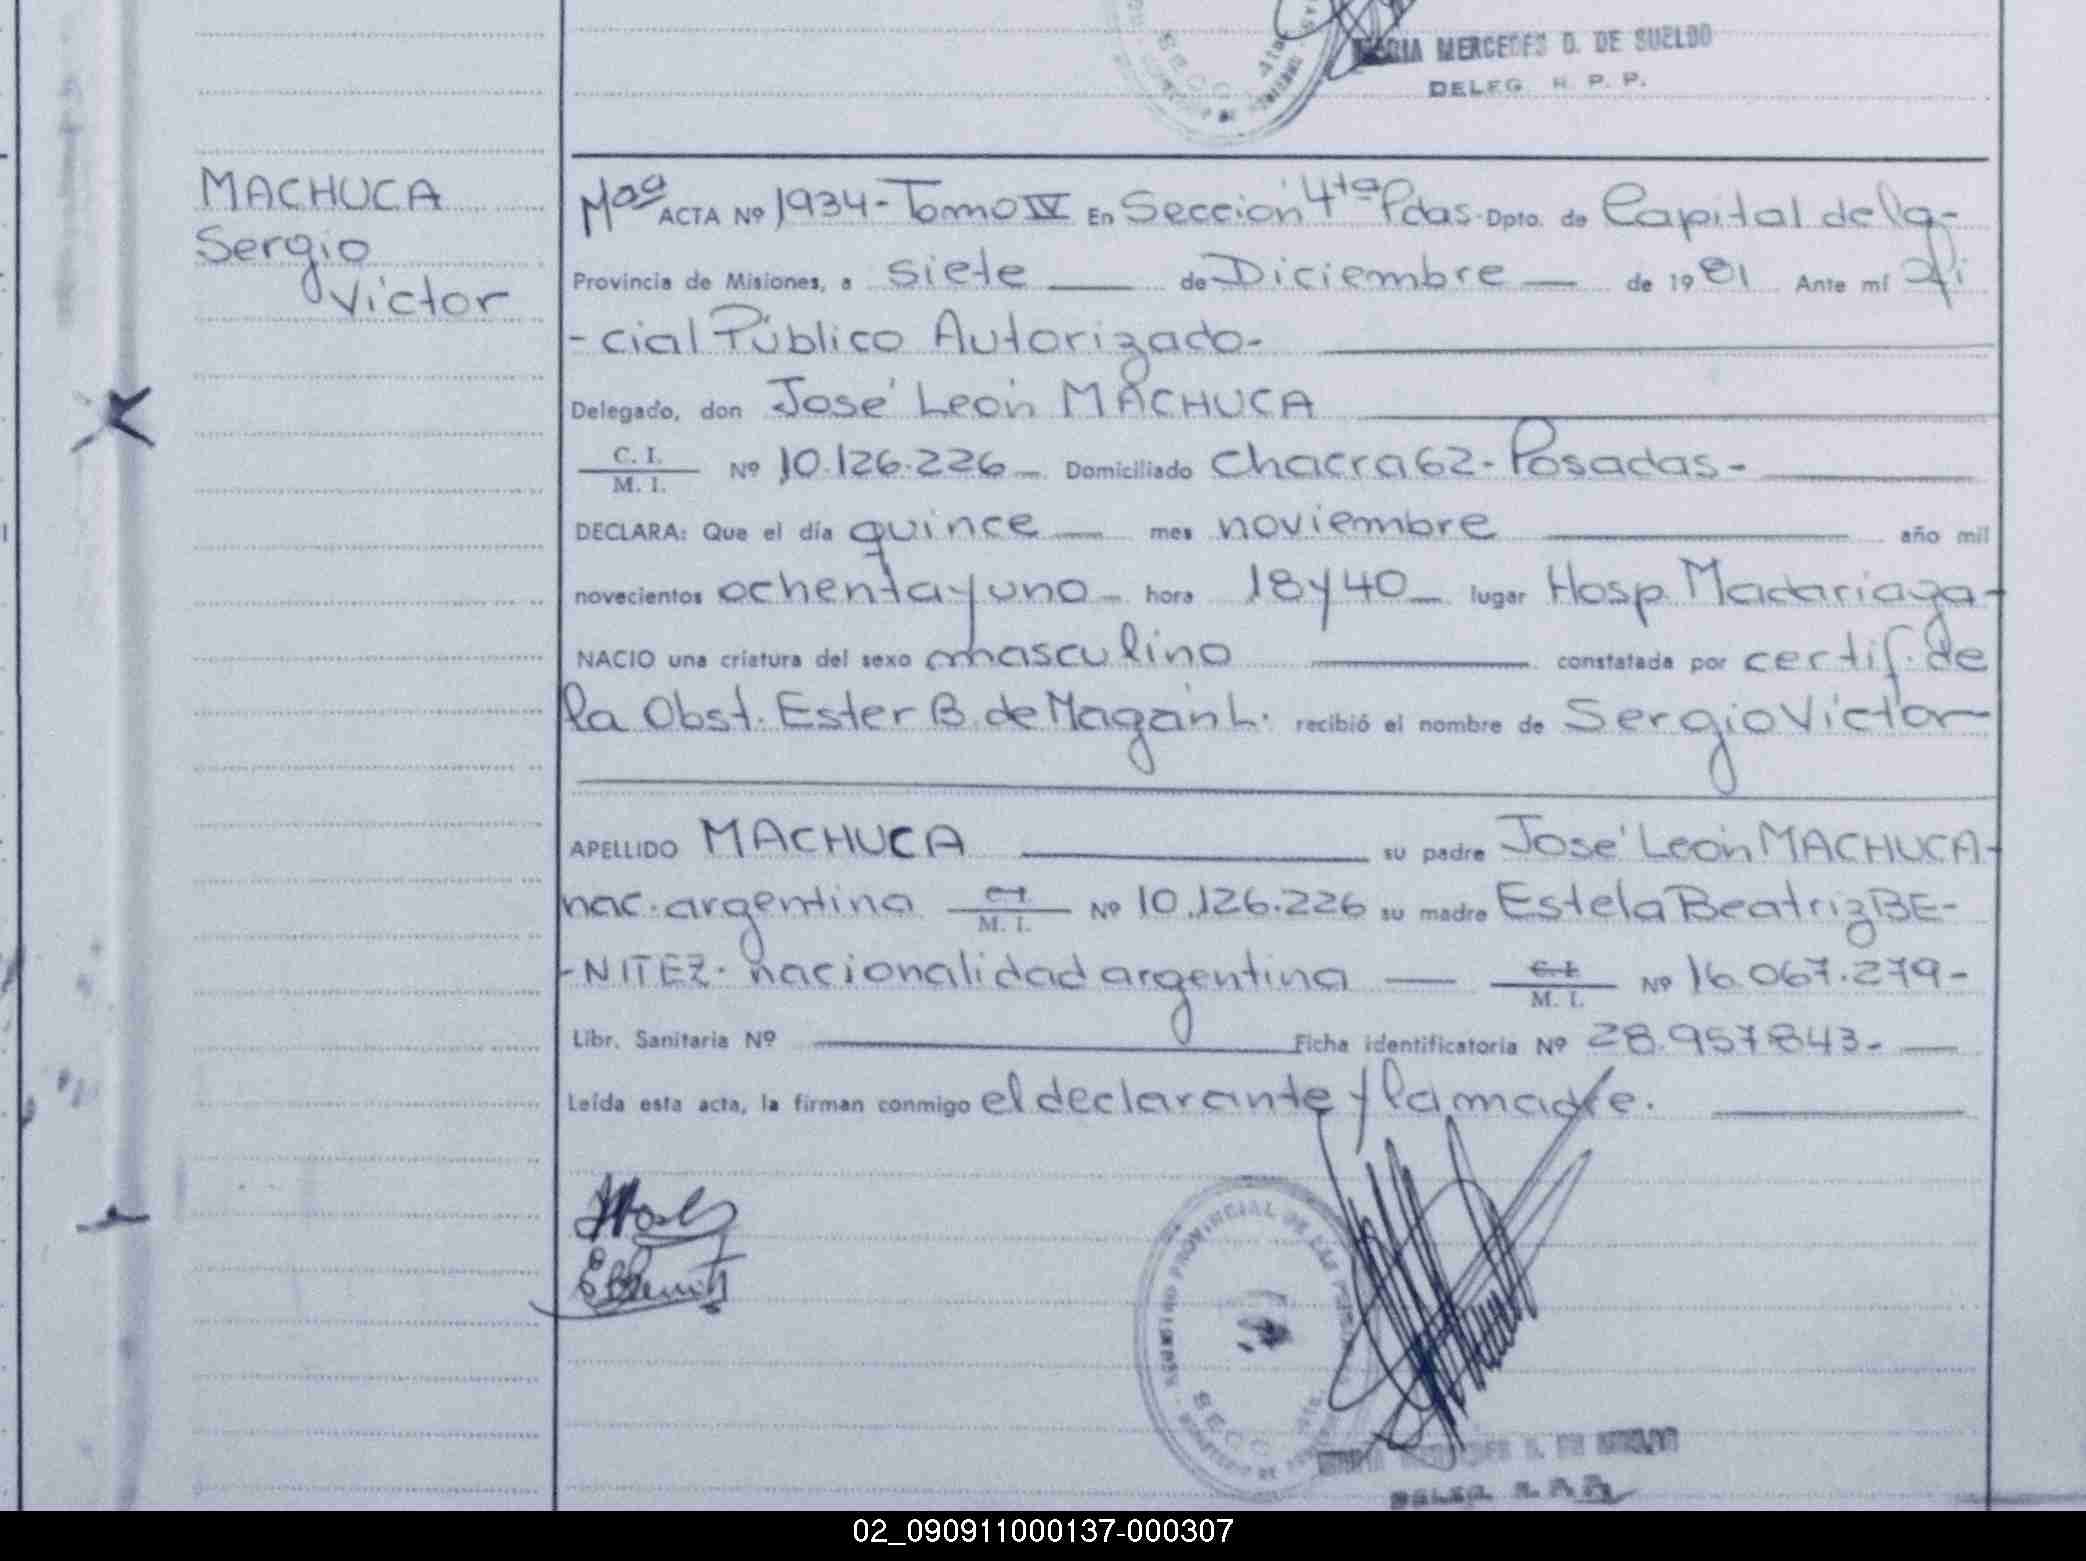 MARIA MERCEDES D. DE SUELDO
DELEG. H. P. P.
MACHUCA
Sergio
Victor
ACTA Nº 1934-Tomo IV En Sección 4ta Pdas. Dpto. de Capital de la-
Provincia de Misiones, a siete de Diciembre de 1981 Ante mí Ofi
-cial Público Autorizado-
Delegado, don José León MACHUCA
C. I.
M. I. Nº 10.126.226 Domiciliado Chacra 62-Posadas-
DECLARA: Que el día quince mes noviembre año mil
novecientos ochenta y uno hora 18 y 40 lugar Hosp. Madariaga-
NACIO una criatura del sexo masculino constatada por certif. de
la Obst. Ester B. de recibió el nombre de Sergio Victor
APELLIDO MACHUCA su padre José León MACHUCA-
nac. argentina C. I.
M. I. Nº 10.126.226 su madre Estela Beatriz BE-
-NITEZ. nacionalidad argentina C. I.
M. I. Nº 16.067.279-
Libr. Sanitaria Nº Ficha identificatoria Nº 28.957843-
Leída esta acta, la firman conmigo el declarante y la madre.
PROVINCIAL DE LAS
SECC.
02_090911000137-000307